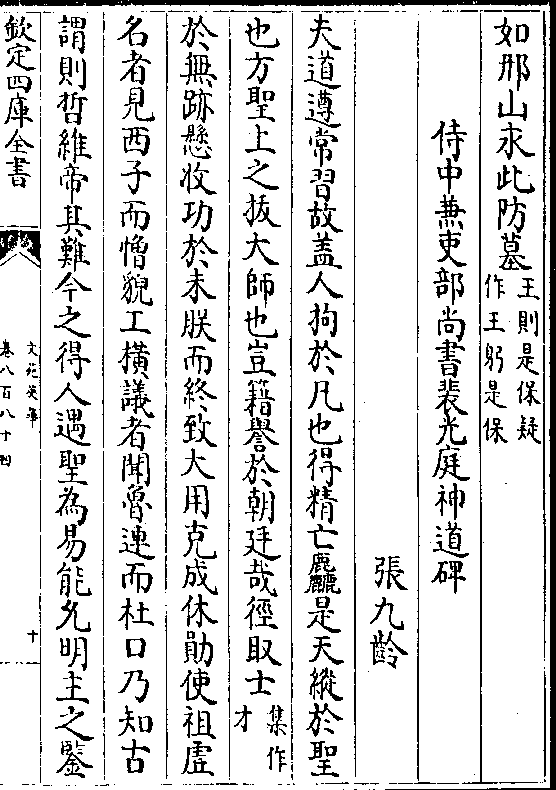 如那山永此防墓王則是保疑作王躬是保
侍中兼吏部尚書裴光庭神道碑
張九齡
夫道遵常習故盖人拘於凡也得精亡麤是天縱於聖
也方聖上之拔大師也豈籍譽於朝廷哉徑取士集作才
於無跡懸收功於未朕而終致大用克成休勛使祖虚
名者見西子而憎貌工橫議者聞魯連而杜口乃知古
謂則哲維帝其難今之得人遇聖為易能允明主之鑒
欽定四庫全書
文苑英華
卷八百八十四
十